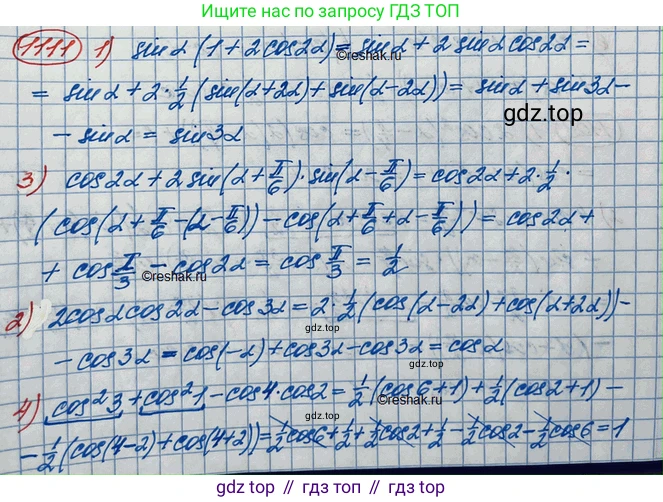 Ищите нас по запросу ГДЗ ТОП
1111 1) sin α (1 + 2 cos 2α) = sin α + 2 sin α cos 2α =
= sin α + 2 · 1/2 (sin(α + 2α) + sin(α - 2α)) = sin α + sin 3α -
gdz.top
- sin α = sin 3α
@reshalka.com
3) cos 2α + 2 sin(α + π/6) · sin(α - π/6) = cos 2α + 2 · 1/2 ·
(cos(α + π/6 - (α - π/6)) - cos(α + π/6 + α - π/6)) = cos 2α +
+ cos π/3 - cos 2α = cos π/3 = 1/2
@reshalka.com
2) 2 cos α cos 2α - cos 3α = 2 · 1/2 (cos(α - 2α) + cos(α + 2α)) -
gdz.top
- cos 3α = cos(-α) + cos 3α - cos 3α = cos α
gdz.top
4) cos² 3 + cos² 1 - cos 4 · cos 2 = 1/2 (cos 6 + 1) + 1/2 (cos 2 + 1) -
@reshalka.com
- 1/2 (cos(4 - 2) + cos(4 + 2)) = 1/2 cos 6 + 1/2 + 1/2 cos 2 + 1/2 - 1/2 cos 2 - 1/2 cos 6 = 1
gdz.top // гдз топ // gdz.top